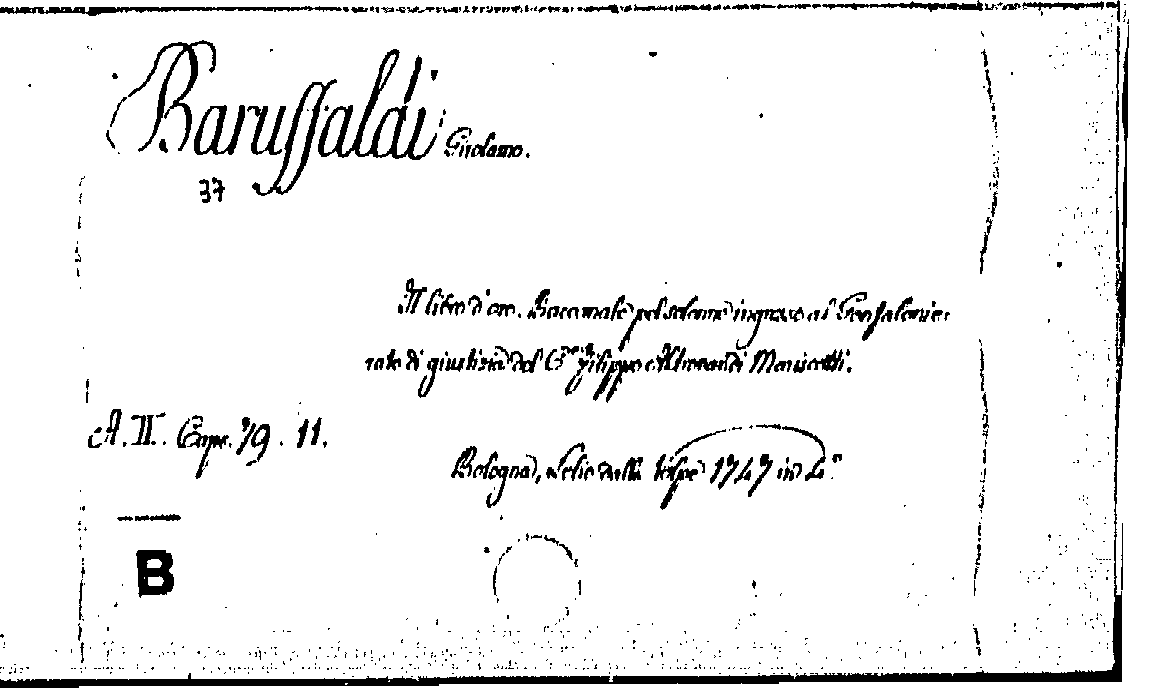 Baruffaldi Girolamo.
37
Il libro d'oro. Baccanale pel solenne ingresso al Gonfalonie-
rato di giustizia del Cte Filippo Aldrovandi Mariscotti.
A. II. Caps. 79. 11.
Bologna, Lelio dalla Volpe 1747 in 4.°
B